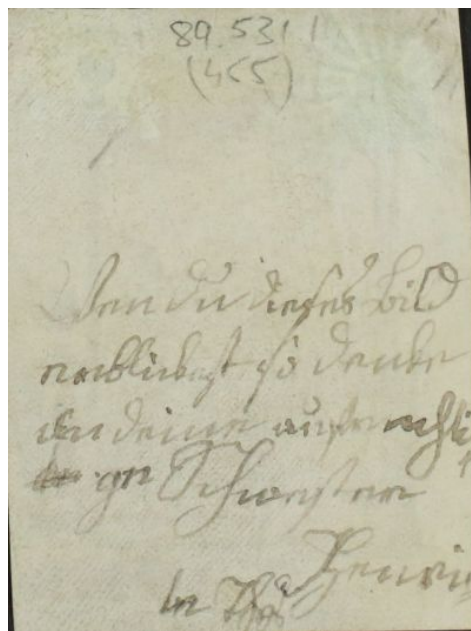 89.531
(455)
Wen du dieses Bild
erblickest so denke
an deine aufrichti
ge Schwester
Henri